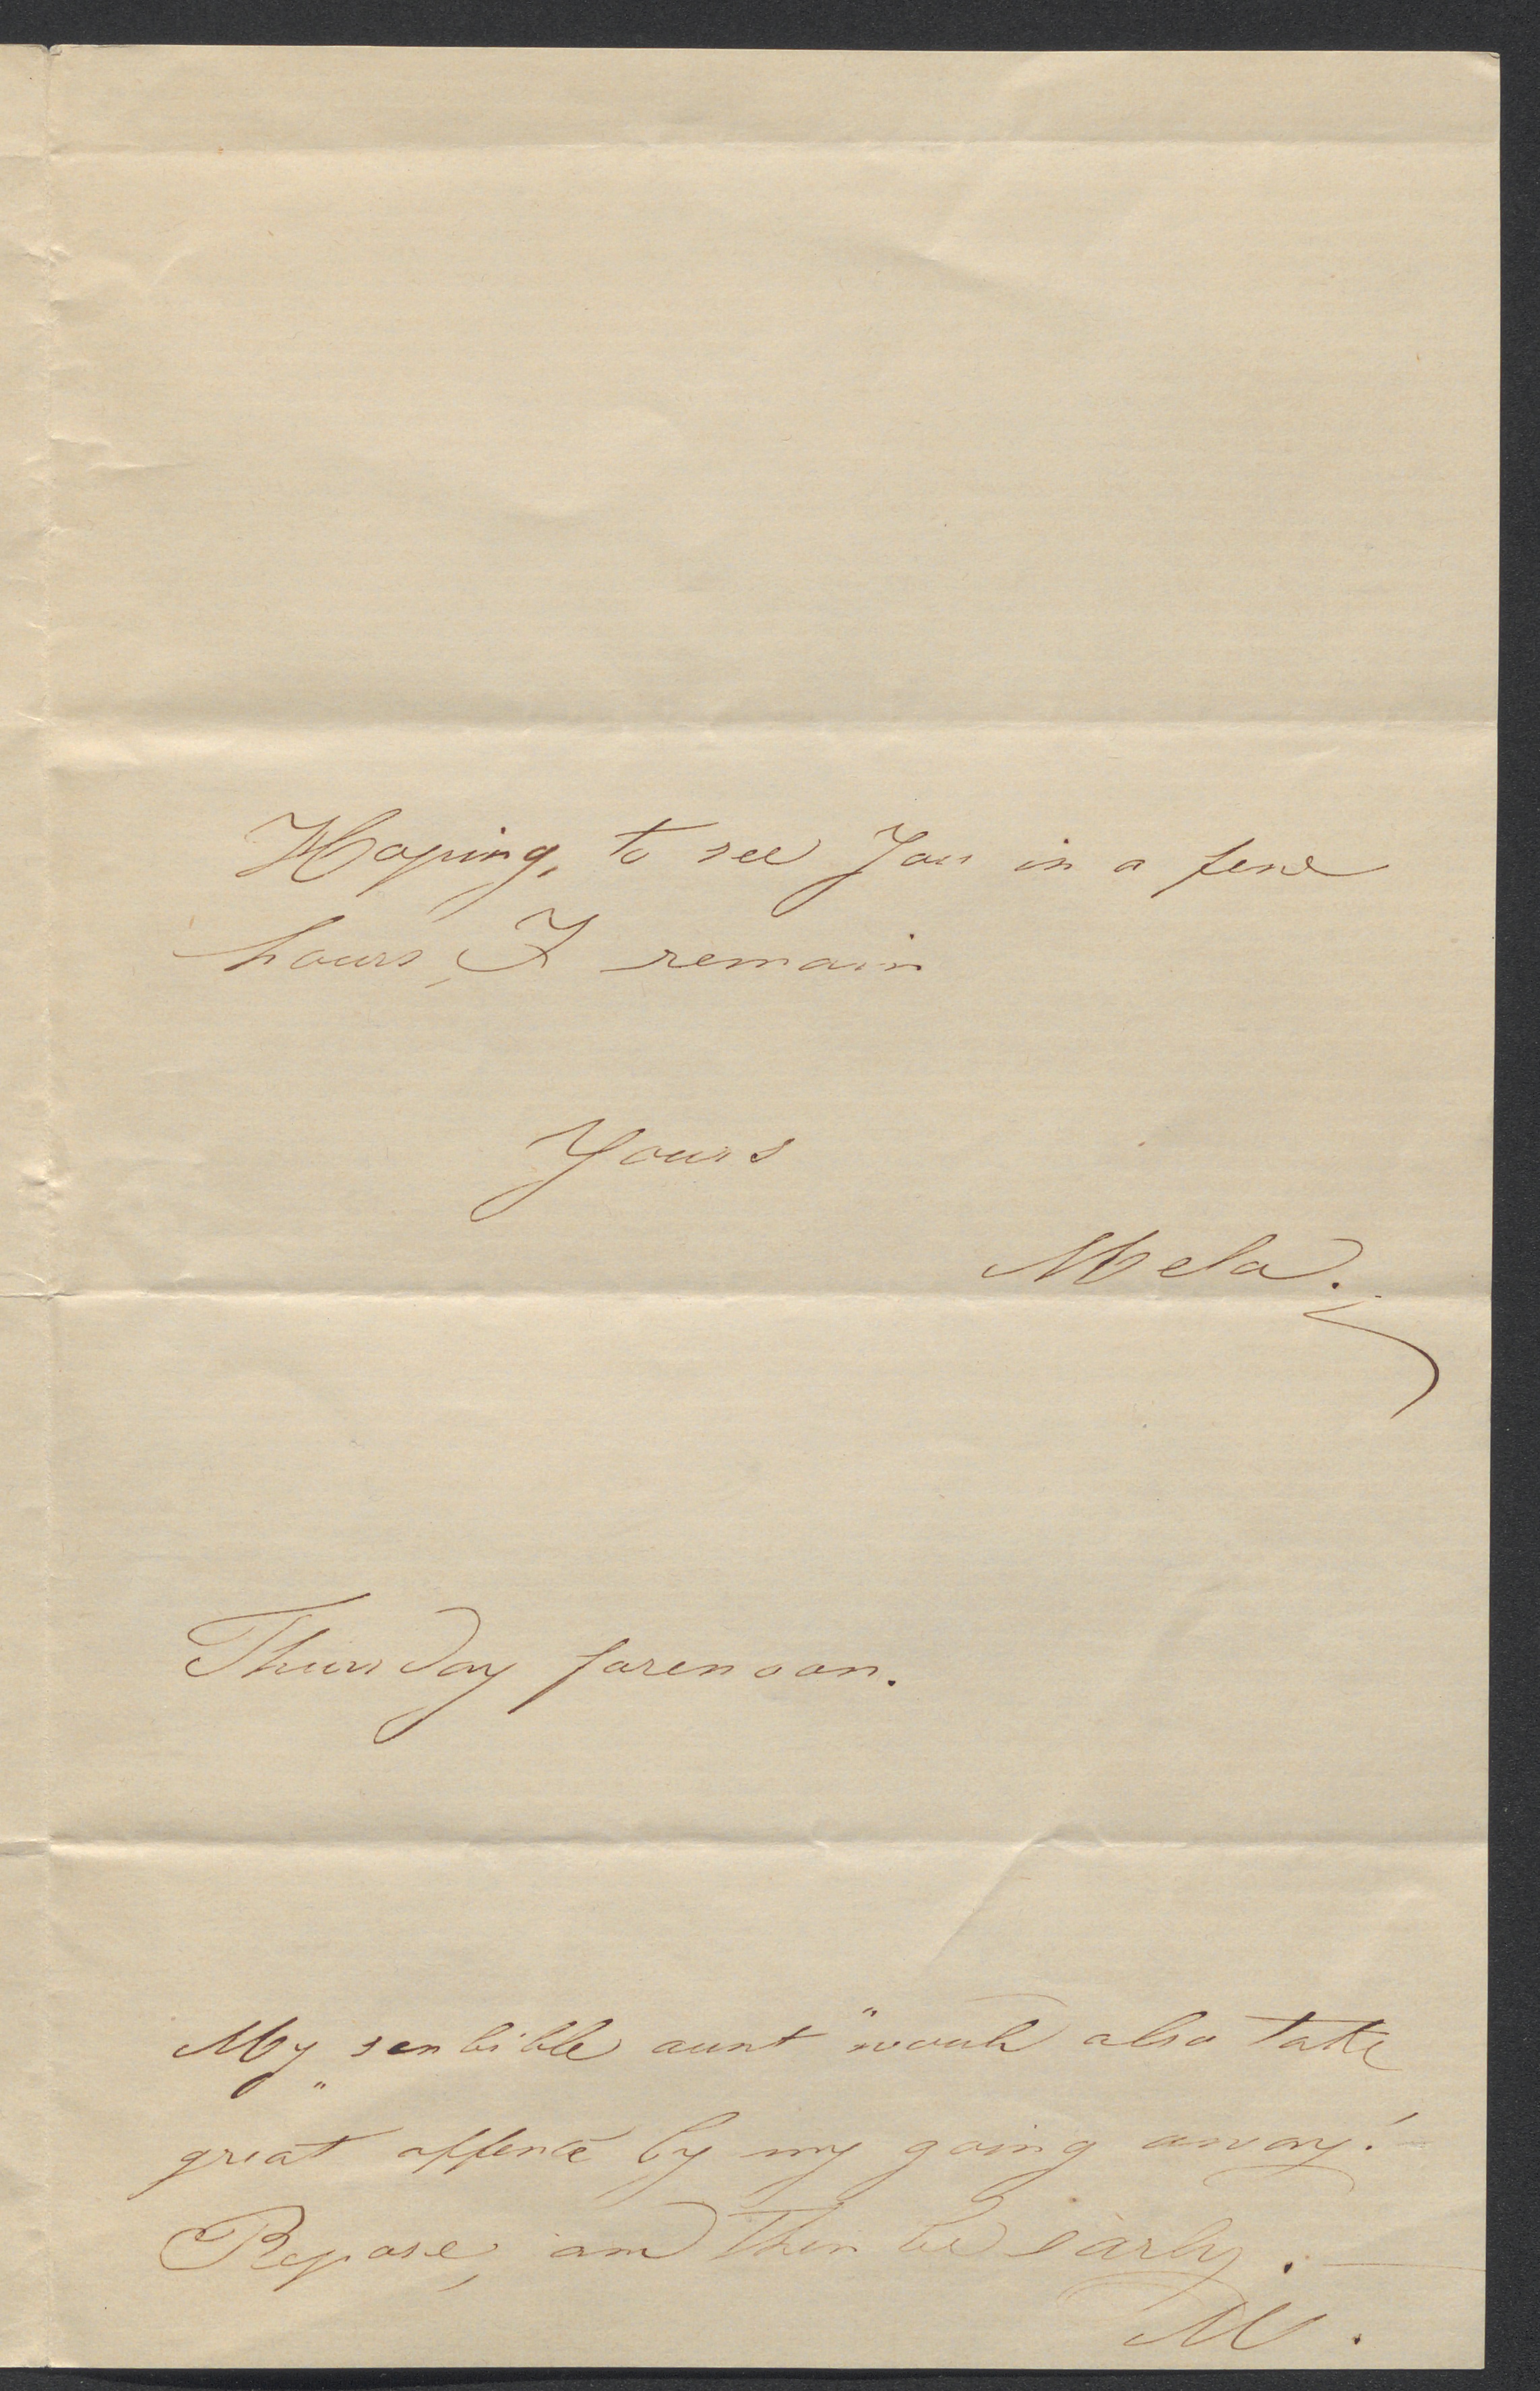 Hoping, to see You in a few
hours, I remain
Yours
Mela.
Thursday forenoon.
My „sensible aunt" would also take
great offence by my going away! —
Repose, and then be early. —
M.